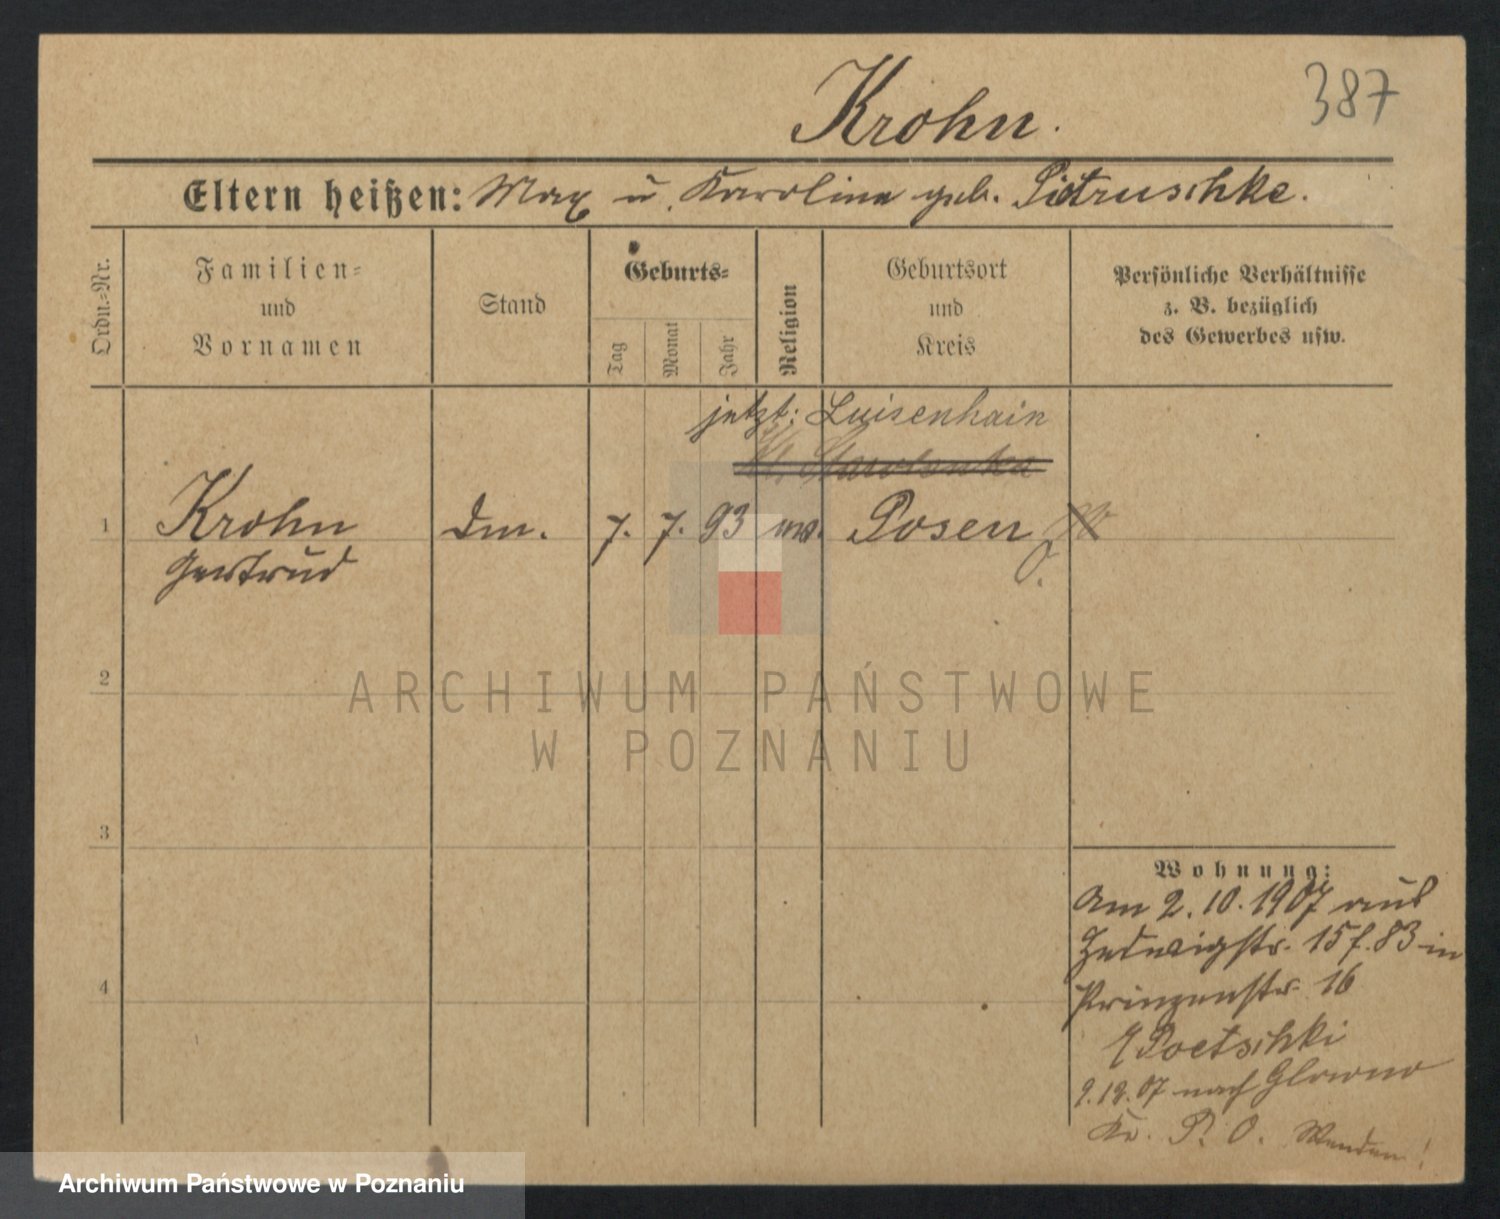 387
Krohn.
Eltern heißen: Max u. Karoline geb. Pietruschke.
Ordn.=Nr.
Familien=
und
Vornamen
Stand
Geburts=
Tag
Monat
Jahr
Religion
Geburtsort
und
Kreis
Persönliche Verhältnisse
z. B. bezüglich
des Gewerbes usw.
jetzt: Luisenhain
Kl. Starolenka
1
Krohn
Gertrud
7. 7. 93
Posen
O.
2
3
4
Wohnung:
Am 2.10.1907 aus
Hedwigstr. 15 f. 83 in
Prinzenstr. 16
Poetschki
07 nach Glowno
Kr. P. O. Wenden!
ARCHIWUM PAŃSTWOWE
W POZNANIU
Archiwum Państwowe w Poznaniu